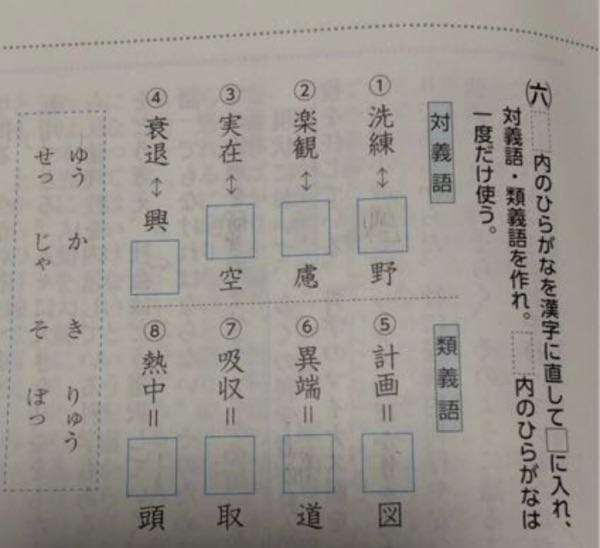 ㈥ 内のひらがなを漢字に直して□に入れ、
対義語・類義語を作れ。 内のひらがなは
一度だけ使う。
対義語
①洗練↔□野
②楽観↔□慮
③実在↔□空
④衰退↔興□
類義語
⑤計画＝□図
⑥異端＝□道
⑦吸収＝□取
⑧熱中＝□頭
ゆう か き りゅう
せっ じゃ そ ぼっ